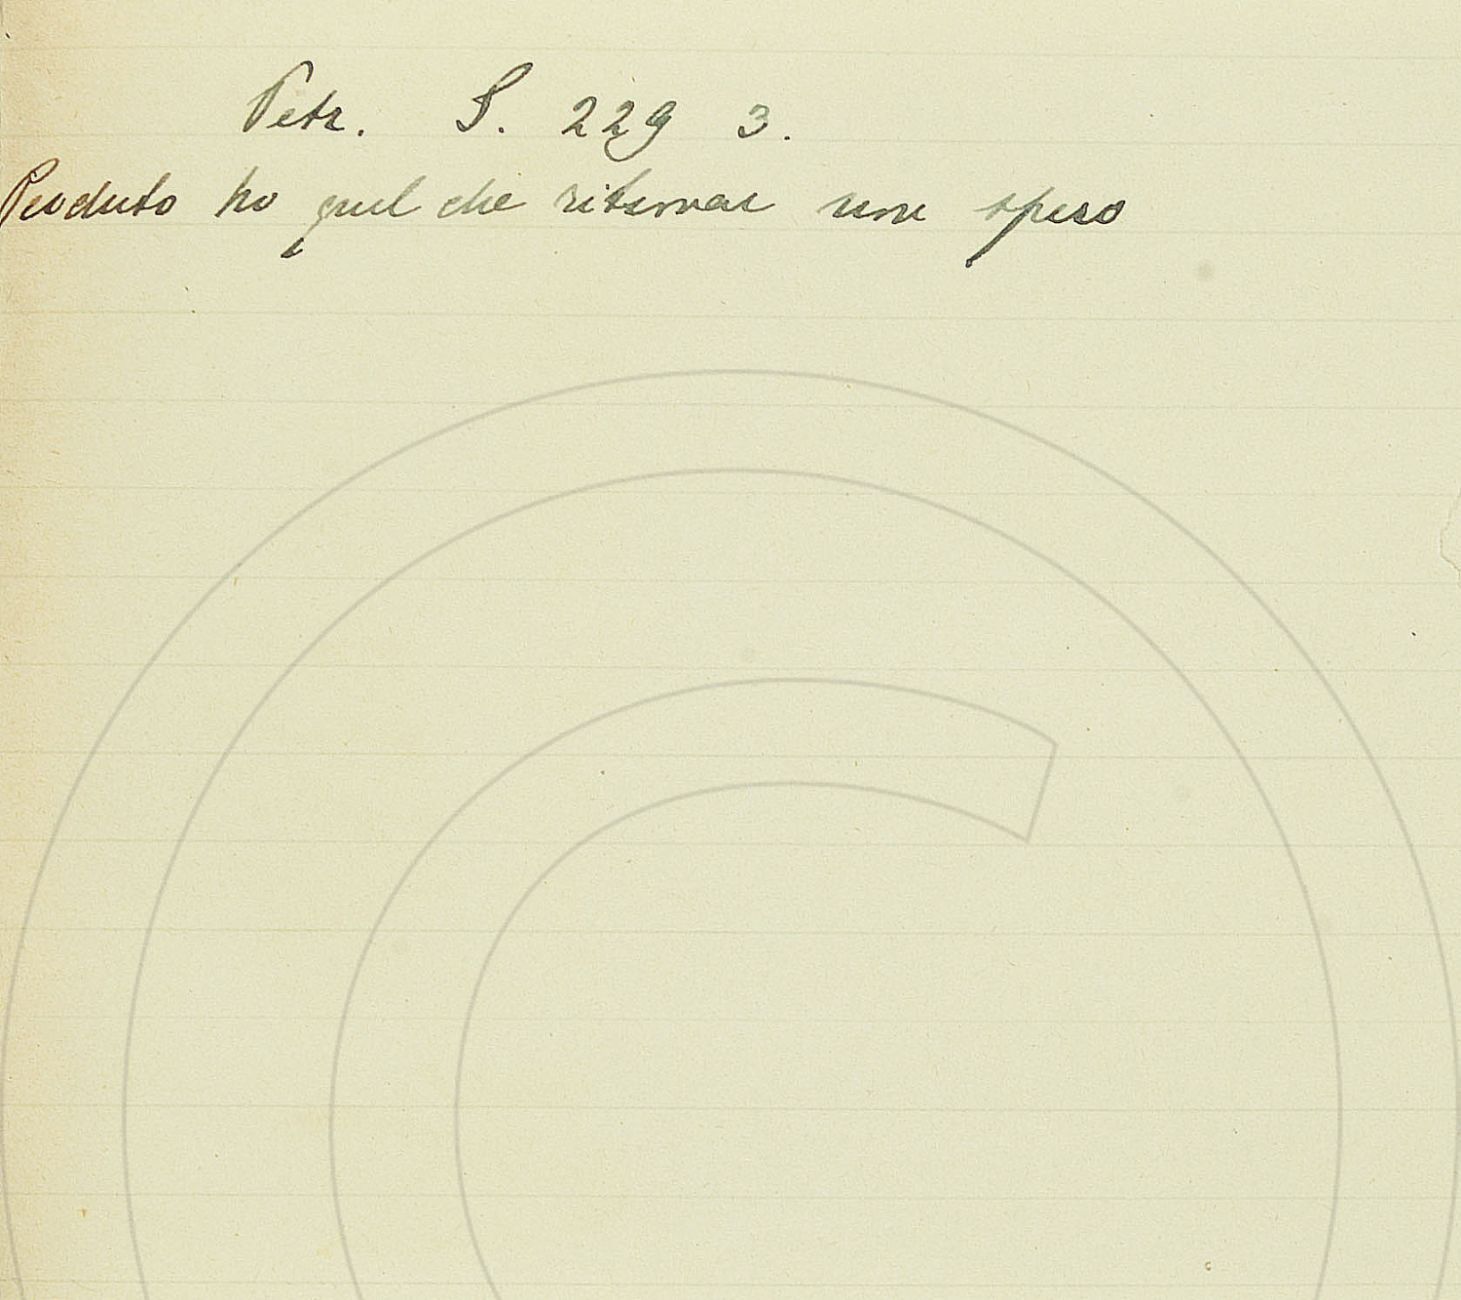 Petr. S. 229 3.
Perduto ho quel che ritrovar non spero